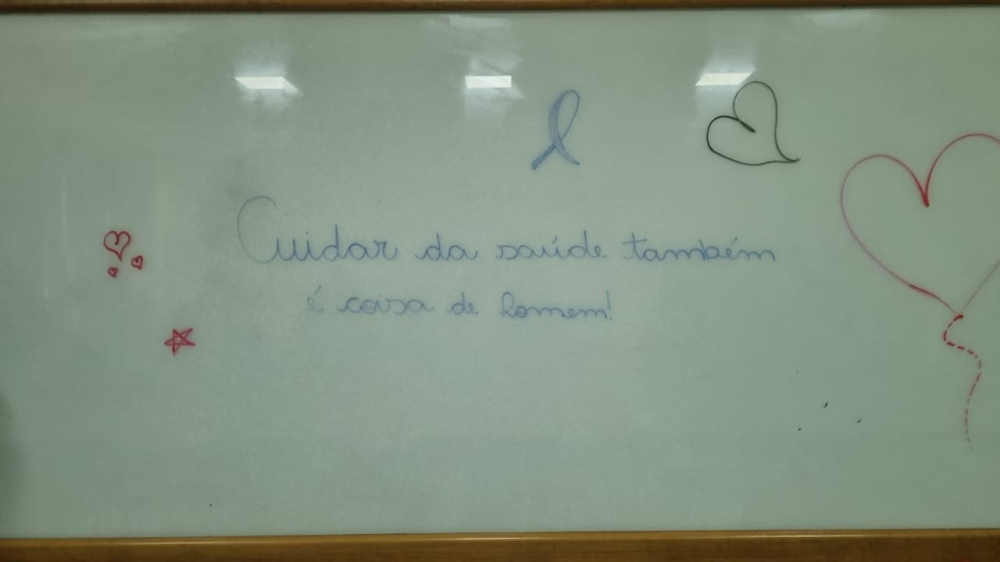 Cuidar da saúde também
é coisa de homem!